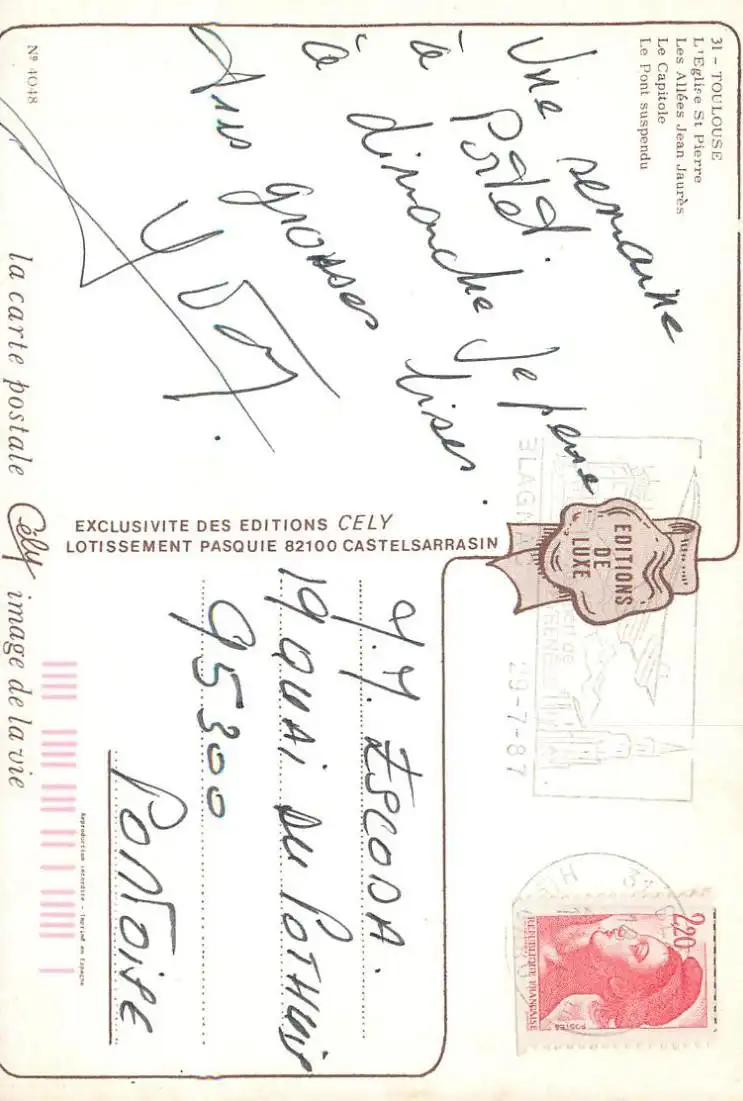 31 - TOULOUSE
L'Eglise St Pierre
Les Allées Jean Jaurès
Le Capitole
Le Pont suspendu
Une semaine
à Portet.
à dimanche je pense
grosses bises.
Nº 4048
la carte postale Cély image de la vie
EXCLUSIVITE DES EDITIONS CELY
LOTISSEMENT PASQUIE 82100 CASTELSARRASIN
EDITIONS
DE
LUXE
BLAGNA
29-7-87
2,20
REPUBLIQUE FRANÇAISE
POSTES
ESCODA.
19 QUAI DU POTHUIS
95300
PONTOISE
Reproduction interdite - Imprimé en Espagne